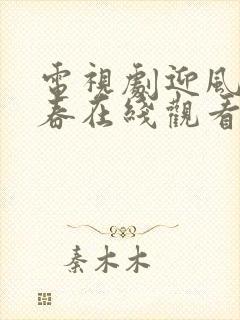 電視劇迎風
春在綫觀看
秦木木